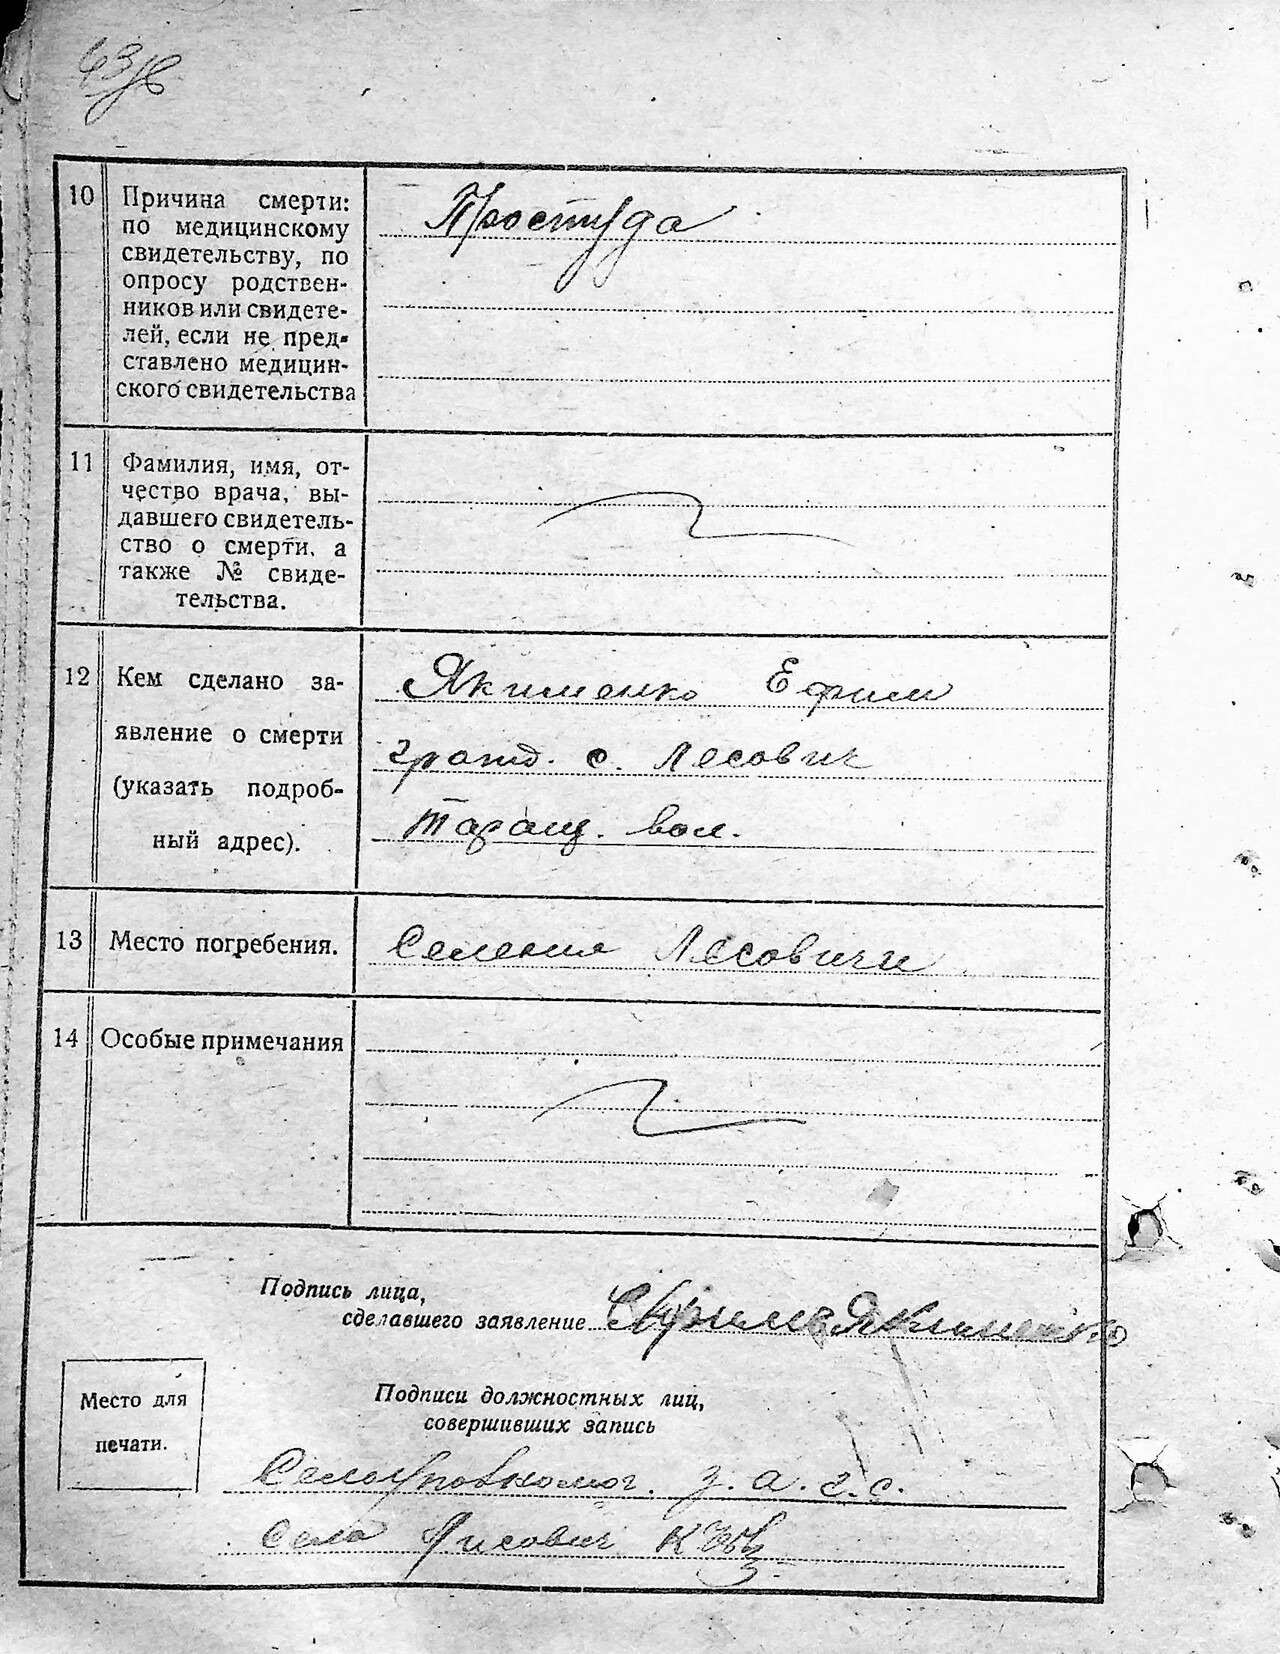 10
Причина смерти:
по медицинскому
свидетельству, по
опросу родствен-
ников или свидете-
лей, если не пред-
ставлено медицин-
ского свидетельства
Простуда
11
Фамилия, имя, от-
чество врача, вы-
давшего свидетель-
ство о смерти, а
также № свиде-
тельства.
12
Кем сделано за-
явление о смерти
(указать подроб-
ный адрес).
Якименко Ефим
гражд. с. Лесович
Таращ. вол.
13
Место погребения.
Селения Лесовичи
14
Особые примечания
Подпись лица,
сделавшего заявление
Якименко
Место для
печати.
Подписи должностных лиц,
совершивших запись
з. а. г. с.
Села Лисович